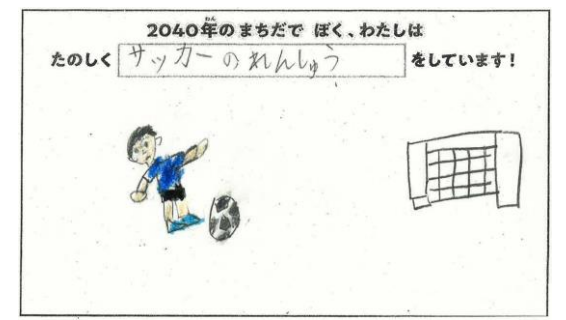 2040年のまちだで ぼく、わたしは
たのしく サッカーのれんしゅう をしています!